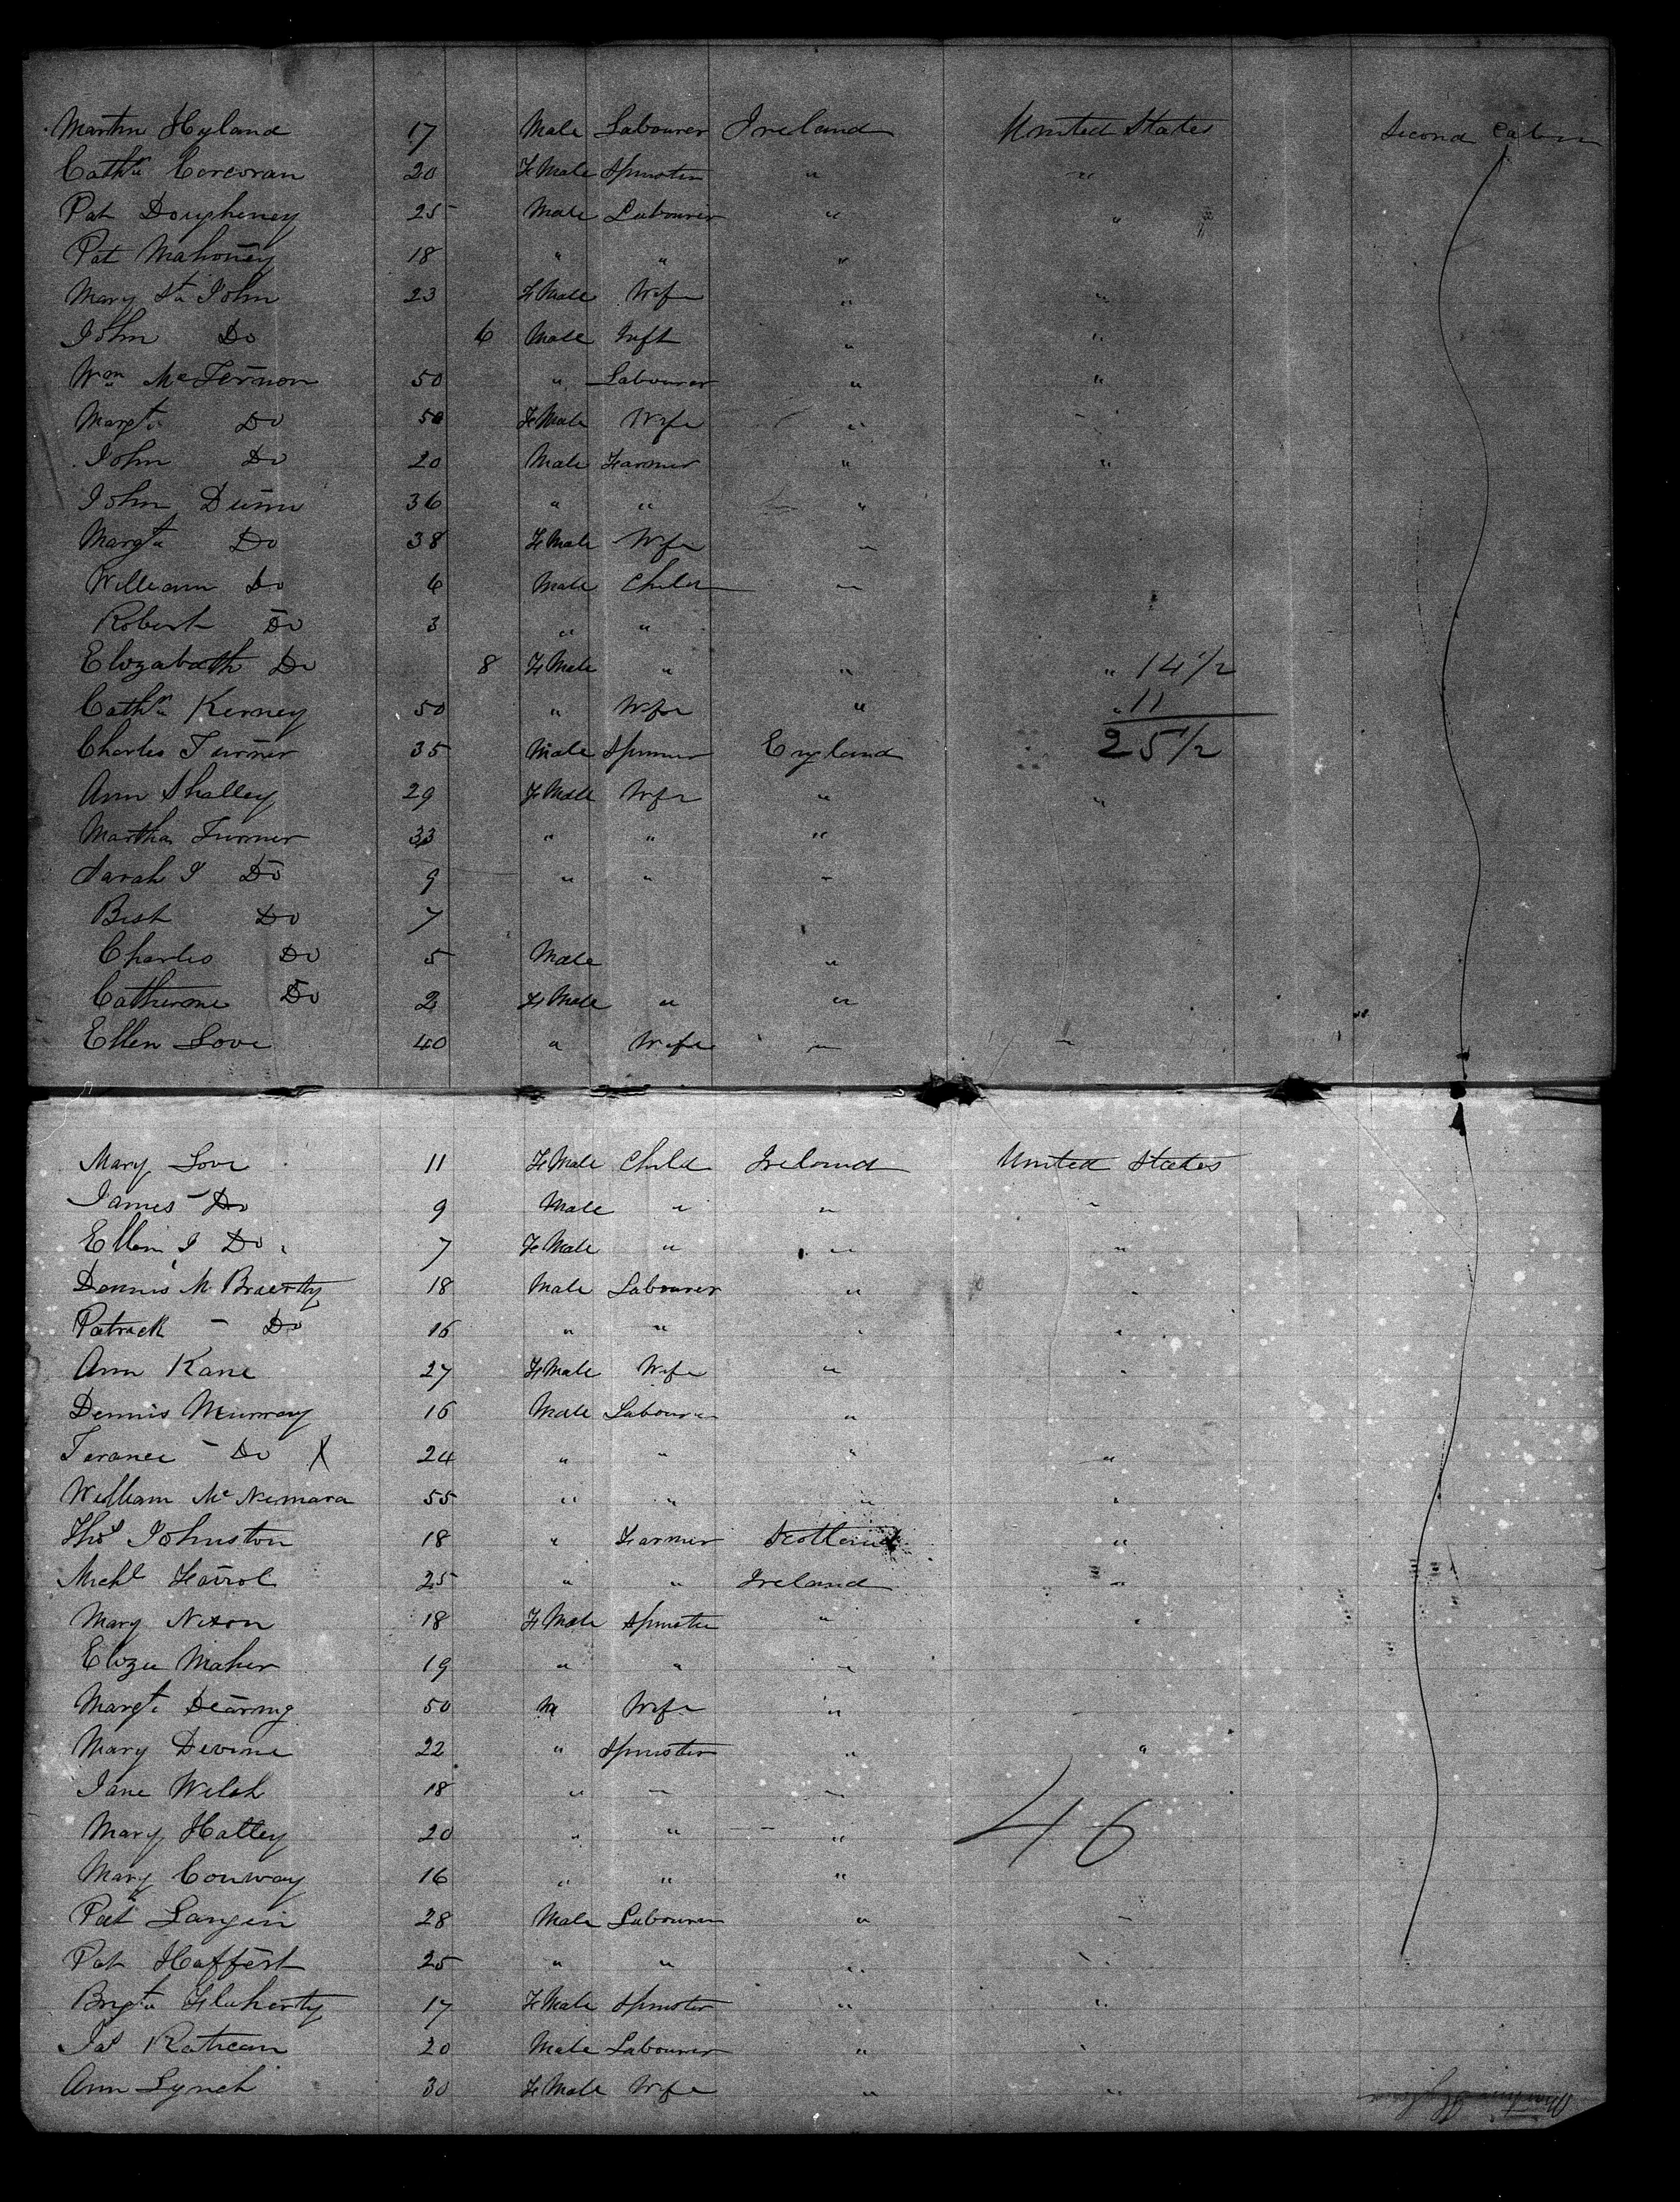 Martin Hyland 17 Male Labourer Ireland United States Second Cabin
Cathn Corcoran 20 FeMale Spinster " "
Pat Dougheney 25 Male Labourer " "
Pat Mahoney 18 " " "
Mary St John 23 FeMale Wife " "
John Do 6 Male Inft " "
Wm McTernon 50 " Labourer " "
Margt Do 50 FeMale Wife " "
John Do 20 Male Farmer " "
John Dunn 36 " " "
Margt Do 38 FeMale Wife "
William Do 6 Male Child "
Robert Do 3 " "
Elizabath Do 8 FeMale " " " 14 1/2
Cathn Kerney 50 " Wife " " 11
Charles Turner 35 Male Spinner England 25 1/2
Ann Shalley 29 FeMale Wife " "
Martha Turner 33 " " "
Sarah J Do 9 " " "
Do 7
Charles Do 5 Male "
Catherine Do 2 FeMale " "
Ellen Love 40 " Wife " "
Mary Love 11 FeMale Child Ireland United States
James Do 9 Male " " "
Ellen J Do 7 FeMale " " "
Dennis 18 Male Labourer " "
Patrick - Do 16 " " " "
Ann Kane 27 FeMale Wife " "
Dennis Murray 16 Male Labourer "
Terance - Do X 24 " " " "
William McNemara 55 " " " "
Thos Johnston 18 " Farmer Scotland "
Michl Farrol 25 " " Ireland "
Mary Nixon 18 FeMale Spinster " "
Eliza Maher 19 " " "
Margt Dearing 50 " Wife "
Mary Devine 22 " Spinster " "
Jane Welsh 18 " " "
Mary Hatley 20 " " " 46
Mary Conway 16 " " "
Pat Langin 28 Male Labourer " "
Pat Haffert 25 " " " "
Brigt Flaherty 17 FeMale Spinster " "
Jas 20 Male Labourer " "
Ann Lynch 30 FeMale Wife " "